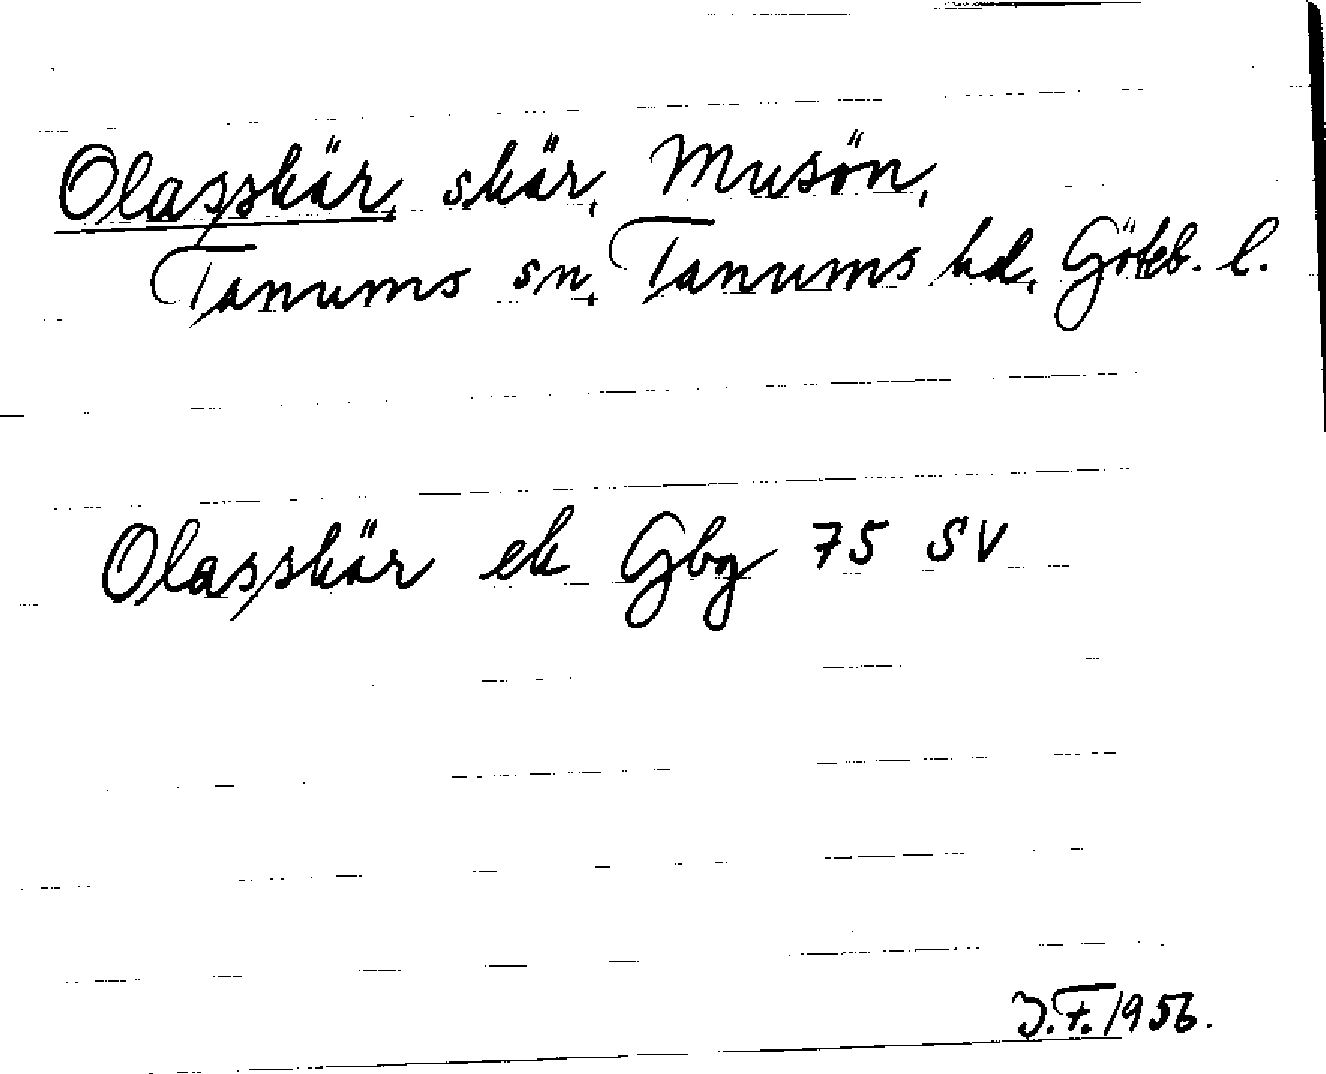 Olasskär, skär, Musön,
Tanums sn, Tanums hd, Göteb. l.
Olasskär ek Gbg 75 SV
J.F. 1956.